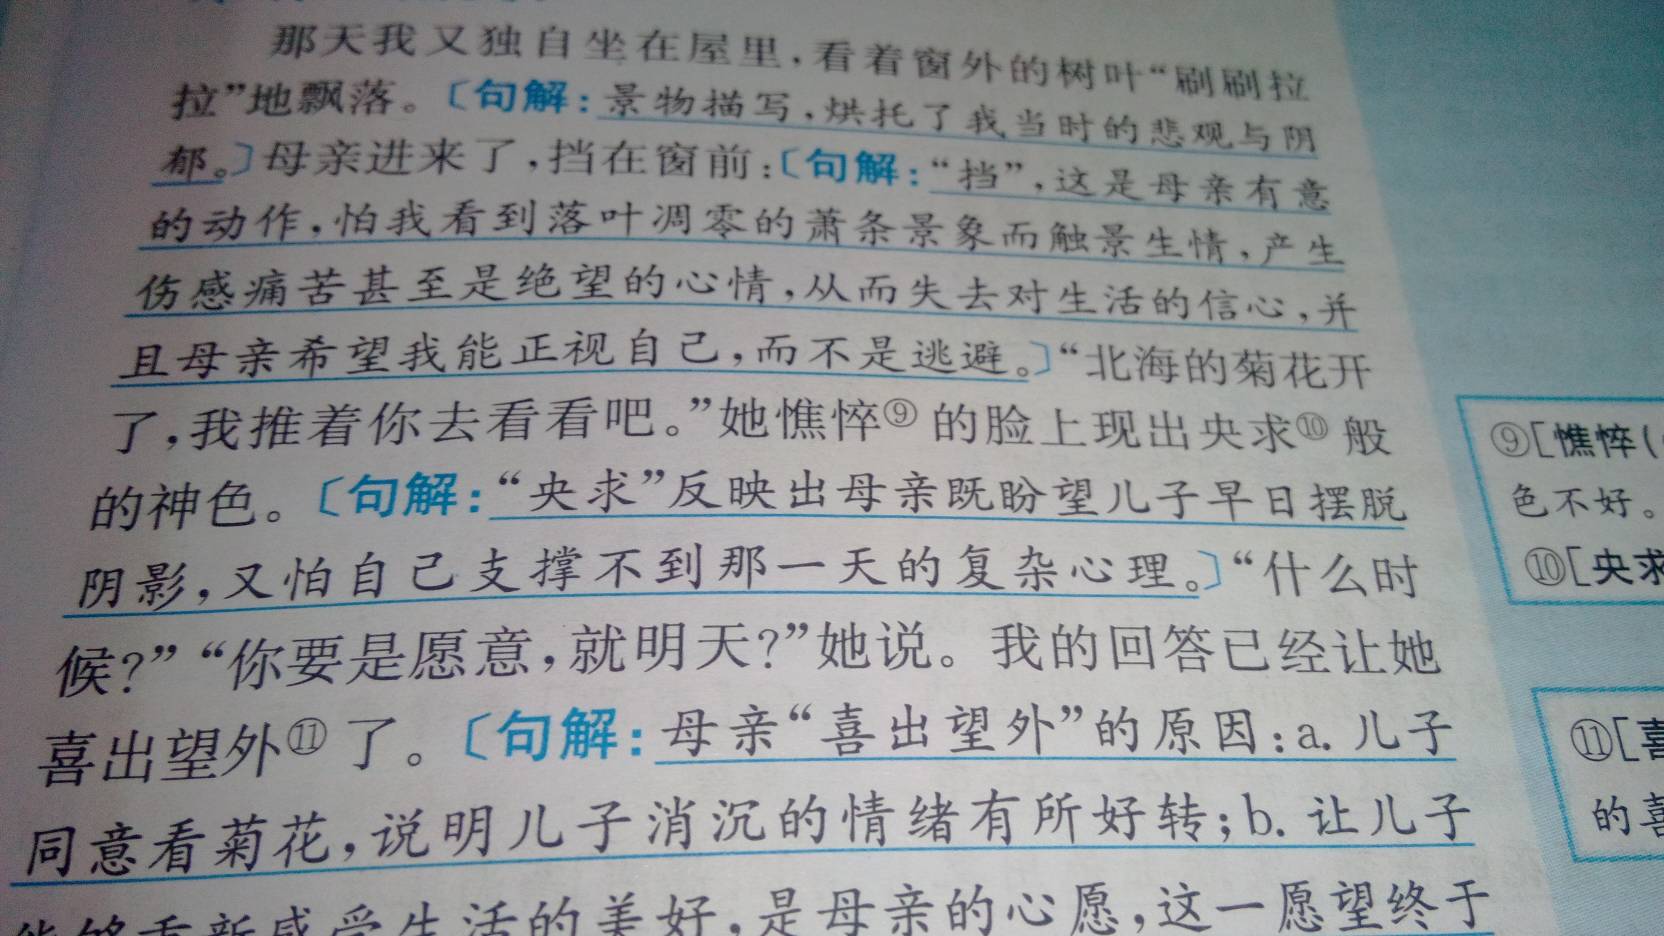 那天我又独自坐在屋里，看着窗外的树叶“刷刷拉
拉”地飘落。〔句解：景物描写，烘托了我当时的悲观与阴
郁。〕母亲进来了，挡在窗前：〔句解：“挡”，这是母亲有意
的动作，怕我看到落叶凋零的萧条景象而触景生情，产生
伤感痛苦甚至是绝望的心情，从而失去对生活的信心，并
且母亲希望我能正视自己，而不是逃避。〕“北海的菊花开
了，我推着你去看看吧。”她憔悴⑨的脸上现出央求⑩般
的神色。〔句解：“央求”反映出母亲既盼望儿子早日摆脱
阴影，又怕自己支撑不到那一天的复杂心理。〕“什么时
候？”“你要是愿意，就明天？”她说。我的回答已经让她
喜出望外⑪了。〔句解：母亲“喜出望外”的原因：a. 儿子
同意看菊花，说明儿子消沉的情绪有所好转；b. 让儿子
能够重新感受生活的美好，是母亲的心愿，这一愿望终于
⑨[憔悴(
色不好。
⑩[央求
⑪[喜
的喜